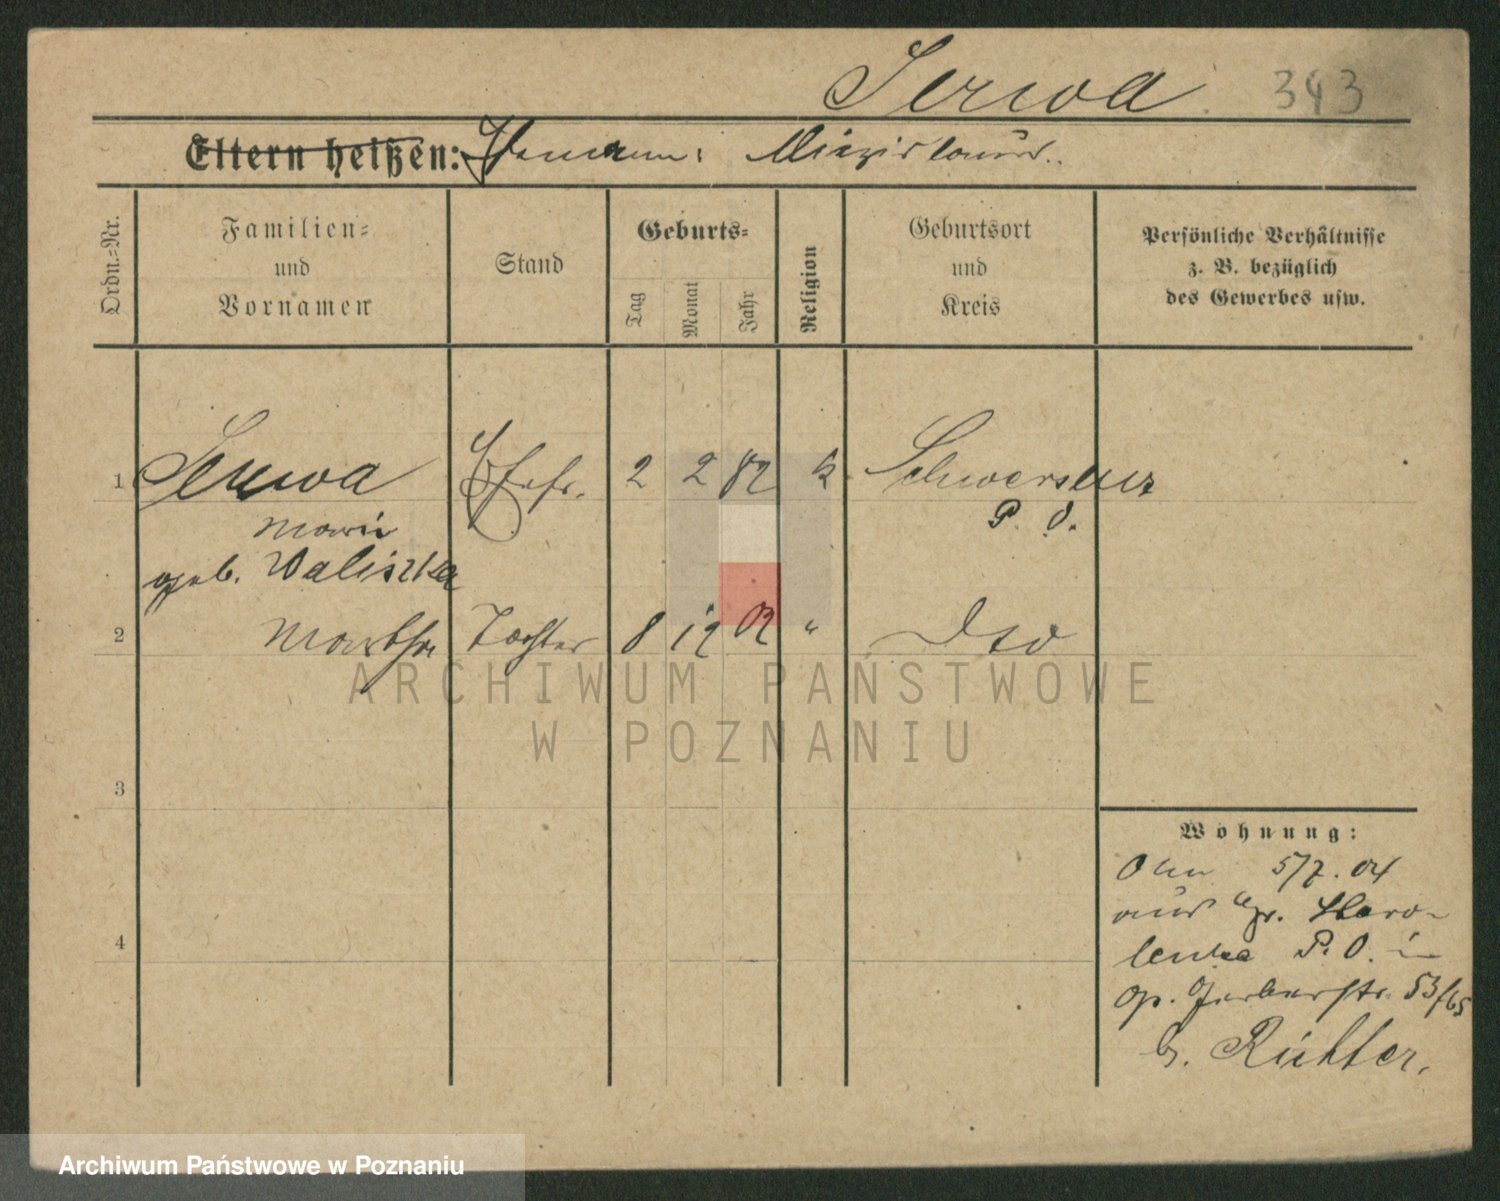 Serwa 343
Eltern heißen: Ehemann: Miezislaus.
Ordn.-Nr.
Familien-
und
Vornamen
Stand
Geburts-
Tag
Monat
Jahr
Religion
Geburtsort
und
Kreis
Persönliche Verhältnisse
z. B. bezüglich
des Gewerbes usw.
1 Serwa Ehefr. 2 2 82 k Schwersenz
Marie P. O.
geb. Waliszka
2 Martha Tochter 8 12 02 " Dto
3
4
Wohnung:
5/7. 04
aus Gr. Staro-
lenka P. O. in
Gerberstr. 53/65
b. Richter.
ARCHIWUM PAŃSTWOWE
W POZNANIU
Archiwum Państwowe w Poznaniu